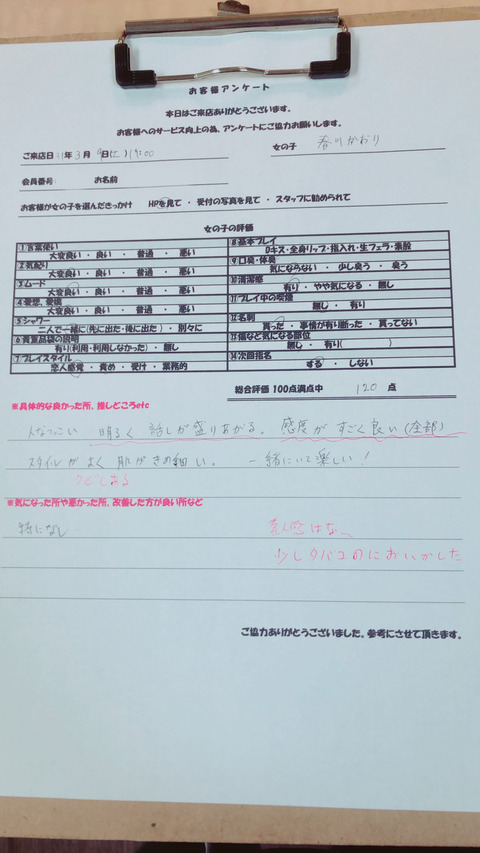 お客様アンケート
本日はご来店ありがとうございます。
お客様へのサービス向上の為、アンケートにご協力お願いします。
ご来店日 31年 3月 日(土) 19:00 女の子 春川かおり
会員番号 お名前
お客様が女の子を選んだきっかけ HPを見て ・ 受付の写真を見て ・ スタッフに勧められて
女の子の評価
1 言葉使い
大変良い ・ 良い ・ 普通 ・ 悪い
2 気配り
大変良い ・ 良い ・ 普通 ・ 悪い
3 ムード
大変良い ・ 良い ・ 普通 ・ 悪い
4 愛想、愛嬌
大変良い ・ 良い ・ 普通 ・ 悪い
5 シャワー
二人で一緒に(先に出た・後に出た) ・ 別々に
6 貴重品袋の説明
有り(利用・利用しなかった) ・ 無し
7 プレイスタイル
恋人感覚 ・ 責め ・ 受け ・ 業務的
8 基本プレイ
Dキス・全身リップ・指入れ・生フェラ・素股
9 口臭・体臭
気にならない ・ 少し臭う ・ 臭う
10 清潔感
有り ・ やや気になる ・ 無し
11 プレイ中の喫煙
無し ・ 有り
12 名刺
貰った ・ 事情が有り断った ・ 貰ってない
13 傷など気になる部位
無し ・ 有り( )
14 次回指名
する ・ しない
総合評価 100点満点中 120 点
※具体的な良かった所、推しどころetc
人なつこい 明るく 話しが盛りあがる。 感度が すごく良い(全部)
スタイルが よく 肌がきめ細い。 一緒にいて楽しい!
※気になった所や悪かった所、改善した方が良い所など
特になし
素人感はない
少しタバコのにおいがした
ご協力ありがとうございました。参考にさせて頂きます。